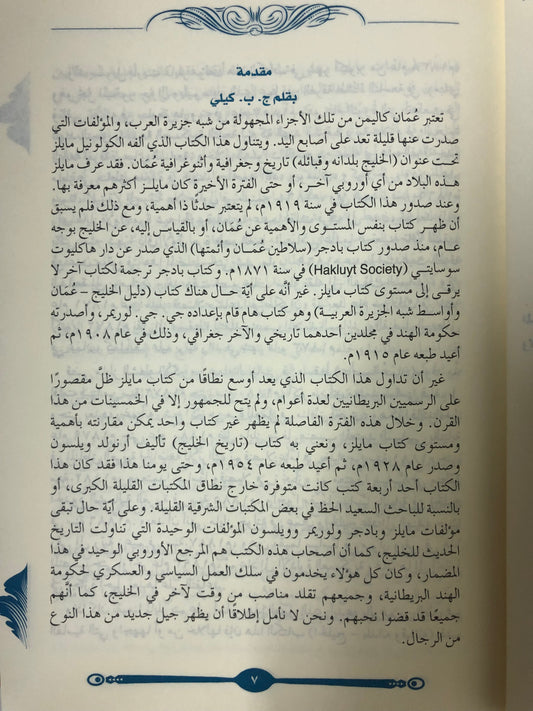 مقدمة
بقلم ج. ب. كيلي
تعتبر عُمَان كاليمن من تلك الأجزاء المجهولة من شبه جزيرة العرب، والمؤلفات التي
صدرت عنها قليلة تعد على أصابع اليد. ويتناول هذا الكتاب الذي ألفه الكولونيل مايلز
تحت عنوان (الخليج بلدانه وقبائله) تاريخ وجغرافية وأثنوغرافية عُمَان. فقد عرف مايلز
هذه البلاد من أي أوروبي آخر، أو حتى الفترة الأخيرة كان مايلز أكثرهم معرفة بها.
وعند صدور هذا الكتاب في سنة ١٩١٩م، لم يعتبر حدثًا ذا أهمية، ومع ذلك فلم يسبق
أن ظهر كتاب بنفس المستوى والأهمية عن عُمَان، أو بالقياس إليه، عن الخليج بوجه
عام، منذ صدور كتاب بادجر (سلاطين عُمَان وأئمتها) الذي صدر عن دار هاكليوت
سوسايتي (Hakluyt Society) في سنة ١٨٧١م. وكتاب بادجر ترجمة لكتاب آخر لا
يرقى إلى مستوى كتاب مايلز. غير أنَّه على أيّة حال هناك كتاب (دليل الخليج – عُمَان
وأواسط شبه الجزيرة العربية) وهو كتاب هام قام بإعداده جي. جي. لوريمر، وأصدرته
حكومة الهند في مجلدين أحدهما تاريخي والآخر جغرافي، وذلك في عام ١٩٠٨م، ثم
أعيد طبعه عام ١٩١٥م.
غير أن تداول هذا الكتاب الذي يعد أوسع نطاقًا من كتاب مايلز ظلَّ مقصورًا
على الرسميين البريطانيين لعدة أعوام، ولم يتح للجمهور إلا في الخمسينات من هذا
القرن. وخلال هذه الفترة الفاصلة لم يظهر غير كتاب واحد يمكن مقارنته بأهمية
ومستوى كتاب مايلز، ونعني به كتاب (تاريخ الخليج) تأليف أرنولد ويلسون
وصدر عام ١٩٢٨م، ثم أعيد طبعه عام ١٩٥٤م، وحتى يومنا هذا فقد كان هذا
الكتاب أحد أربعة كتب كانت متوفرة خارج نطاق المكتبات القليلة الكبرى، أو
بالنسبة للباحث السعيد الحظ في بعض المكتبات الشرقية القليلة. وعلى أيّة حال تبقى
مؤلفات مايلز وبادجر ولوريمر وويلسون المؤلفات الوحيدة التي تناولت التاريخ
الحديث للخليج، كما أن أصحاب هذه الكتب هم المرجع الأوروبي الوحيد في هذا
المضمار، وكان كل هؤلاء يخدمون في سلك العمل السياسي والعسكري لحكومة
الهند البريطانية، وجميعهم تقلد مناصب من وقت لآخر في الخليج، كما أنَّهم
جميعًا قد قضوا نحبهم. ونحن لا نأمل إطلاقًا أن يظهر جيل جديد من هذا النوع
من الرجال.
٧